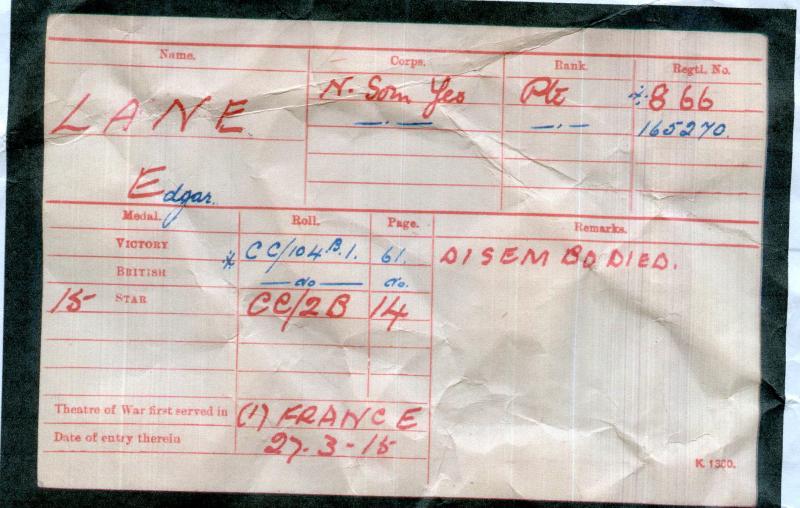 Name. Corps. Rank. Regtl. No.
LANE N. Som Yeo Pte 866
165270.
Edgar.
Medal. Roll. Page. Remarks.
VICTORY CC/104.B.1. 61. DISEMBODIED.
BRITISH do do.
15 STAR CC/2B 14
Theatre of War first served in (1) FRANCE
Date of entry therein 27-3-15
K 1380.